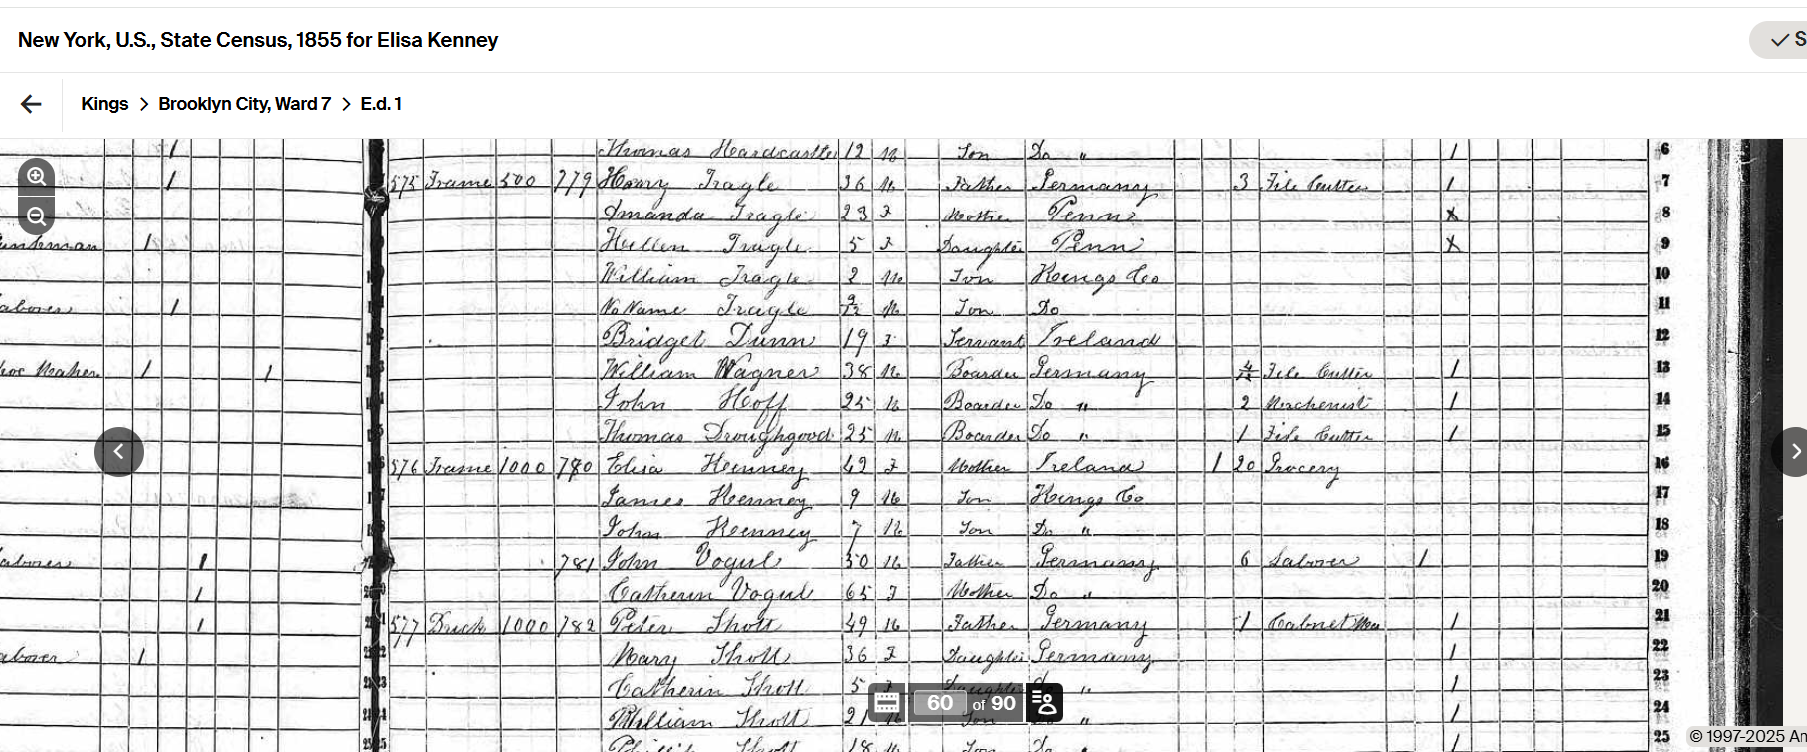 New York, U.S., State Census, 1855 for Elisa Kenney
S
Kings > Brooklyn City, Ward 7 > E.d. 1
1 Thomas Hardcastle 12 M Son Do " 1 6
1 575 Frame 500 779 Henry Tragle 36 M Father Germany 3 File Cutter 1 7
Amanda Tragle 23 F Mother Penn X 8
1 Hellen Tragle 5 F Daughter Penn X 9
William Tragle 2 M Son Kings Co 10
1 No Name Tragle M Son Do 11
Bridget Dunn 19 F Servant Ireland 12
Maker 1 1 William Wagner 38 M Boarder Germany File Cutter 1 13
John Hoff 25 M Boarder Do " 2 Mechenist 1 14
Thomas Droughgood 25 M Boarder Do " 1 File Cutter 1 15
576 Frame 1000 780 Elisa Kenney 49 F Mother Ireland 1 20 Grocery 16
James Kenney 9 M Son Kings Co 17
John Kenney 7 M Son Do " 18
1 781 John Vogul 50 M Father Germany 6 Laborer 1 19
1 Catherin Vogul 65 F Mother Do " 20
1 577 Brick 1000 782 Peter Shott 49 M Father Germany 1 Cabnet 1 21
1 Mary Shott 36 F Daughter Germany 1 22
Catherin Shott 5 " 1 23
William Shott 21 M Son " 1 24
Shott 18 M Son Do " 1 25
60 of 90
© 1997-2025 An